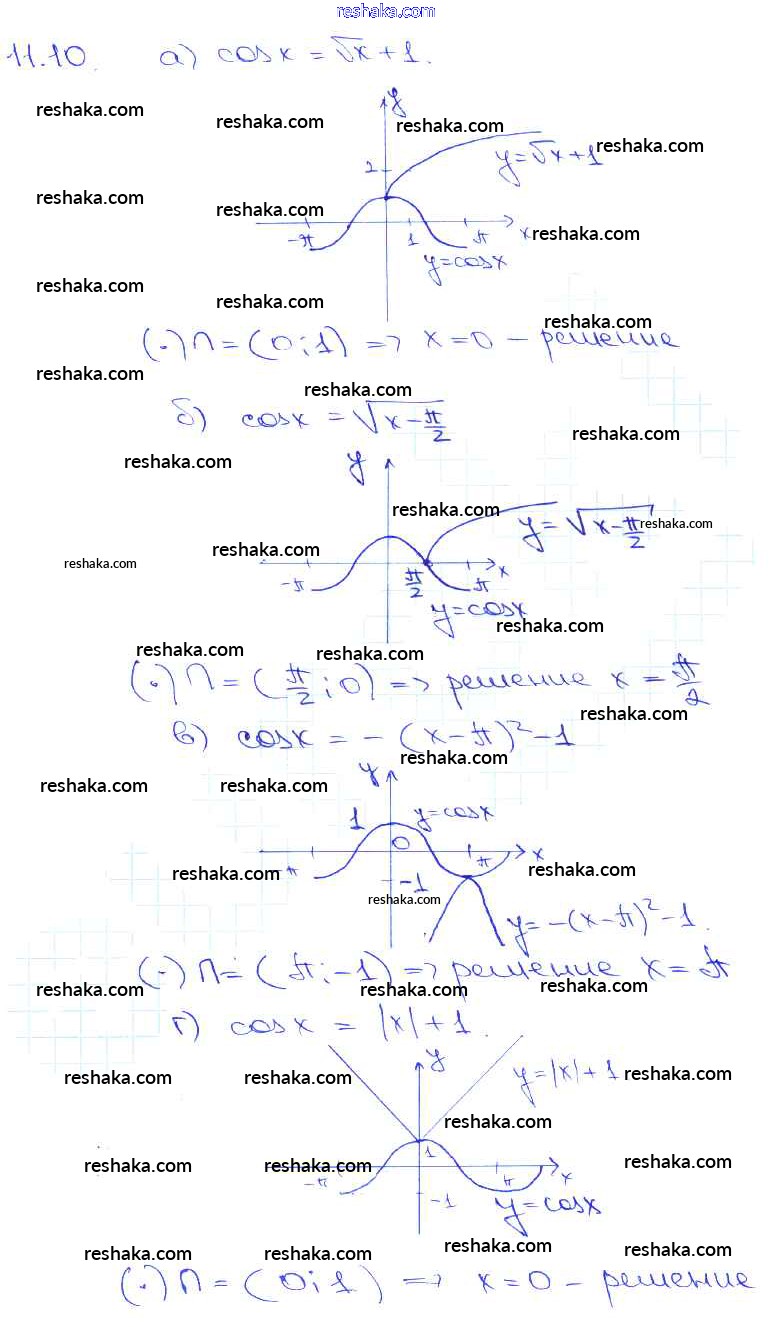 reshaka.com
11.10. а) cosx = √x + 1.
y
reshaka.com reshaka.com reshaka.com reshaka.com
2 y=√x+1
reshaka.com reshaka.com
-π 1 π x reshaka.com
y=cosx
reshaka.com reshaka.com
reshaka.com
(·)П=(0;1) => x=0 – решение
reshaka.com reshaka.com
б) cosx = √x-π/2
reshaka.com
y reshaka.com
reshaka.com y=√x-π/2 reshaka.com
reshaka.com reshaka.com
-π π/2 π x
y=cosx
reshaka.com
reshaka.com reshaka.com
(·)П=(π/2;0) => решение x=π/2
reshaka.com
в) cosx = -(x-π)²-1
reshaka.com
y
reshaka.com reshaka.com
1 y=cosx
0 x
reshaka.com π π reshaka.com
-1
reshaka.com
y=-(x-π)²-1.
(·)П=(π;-1) => решение x=π
reshaka.com reshaka.com reshaka.com
г) cosx = |x|+1.
y
reshaka.com reshaka.com y=|x|+1 reshaka.com
reshaka.com
1
reshaka.com reshaka.com reshaka.com
-π π x
-1 y=cosx
reshaka.com reshaka.com reshaka.com reshaka.com
(·)П=(0;1) => x=0 – решение